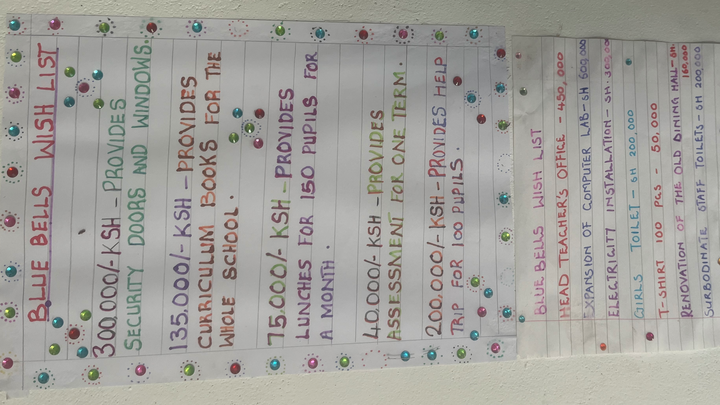 BLUE BELLS WISH LIST
300,000/- KSH - PROVIDES
SECURITY DOORS AND WINDOWS.
135,000/- KSH - PROVIDES
CURRICULUM BOOKS FOR THE
WHOLE SCHOOL.
75,000/- KSH - PROVIDES
LUNCHES FOR 150 PUPILS FOR
A MONTH.
40,000/- KSH - PROVIDES
ASSESSMENT FOR ONE TERM.
200,000/- KSH - PROVIDES HELP
TRIP FOR 100 PUPILS.
BLUE BELLS WISH LIST
HEAD TEACHER'S OFFICE - 450,000
EXPANSION OF COMPUTER LAB - SH 500,000
ELECTRICITY INSTALLATION - SH. 300,00
GIRLS TOILET - SH 200,000
T-SHIRT 100 PCS - 50,000
RENOVATION OF THE OLD DINING HALL - SH.
160,000
SURBODINATE STAFF TOILETS - SH 200,000